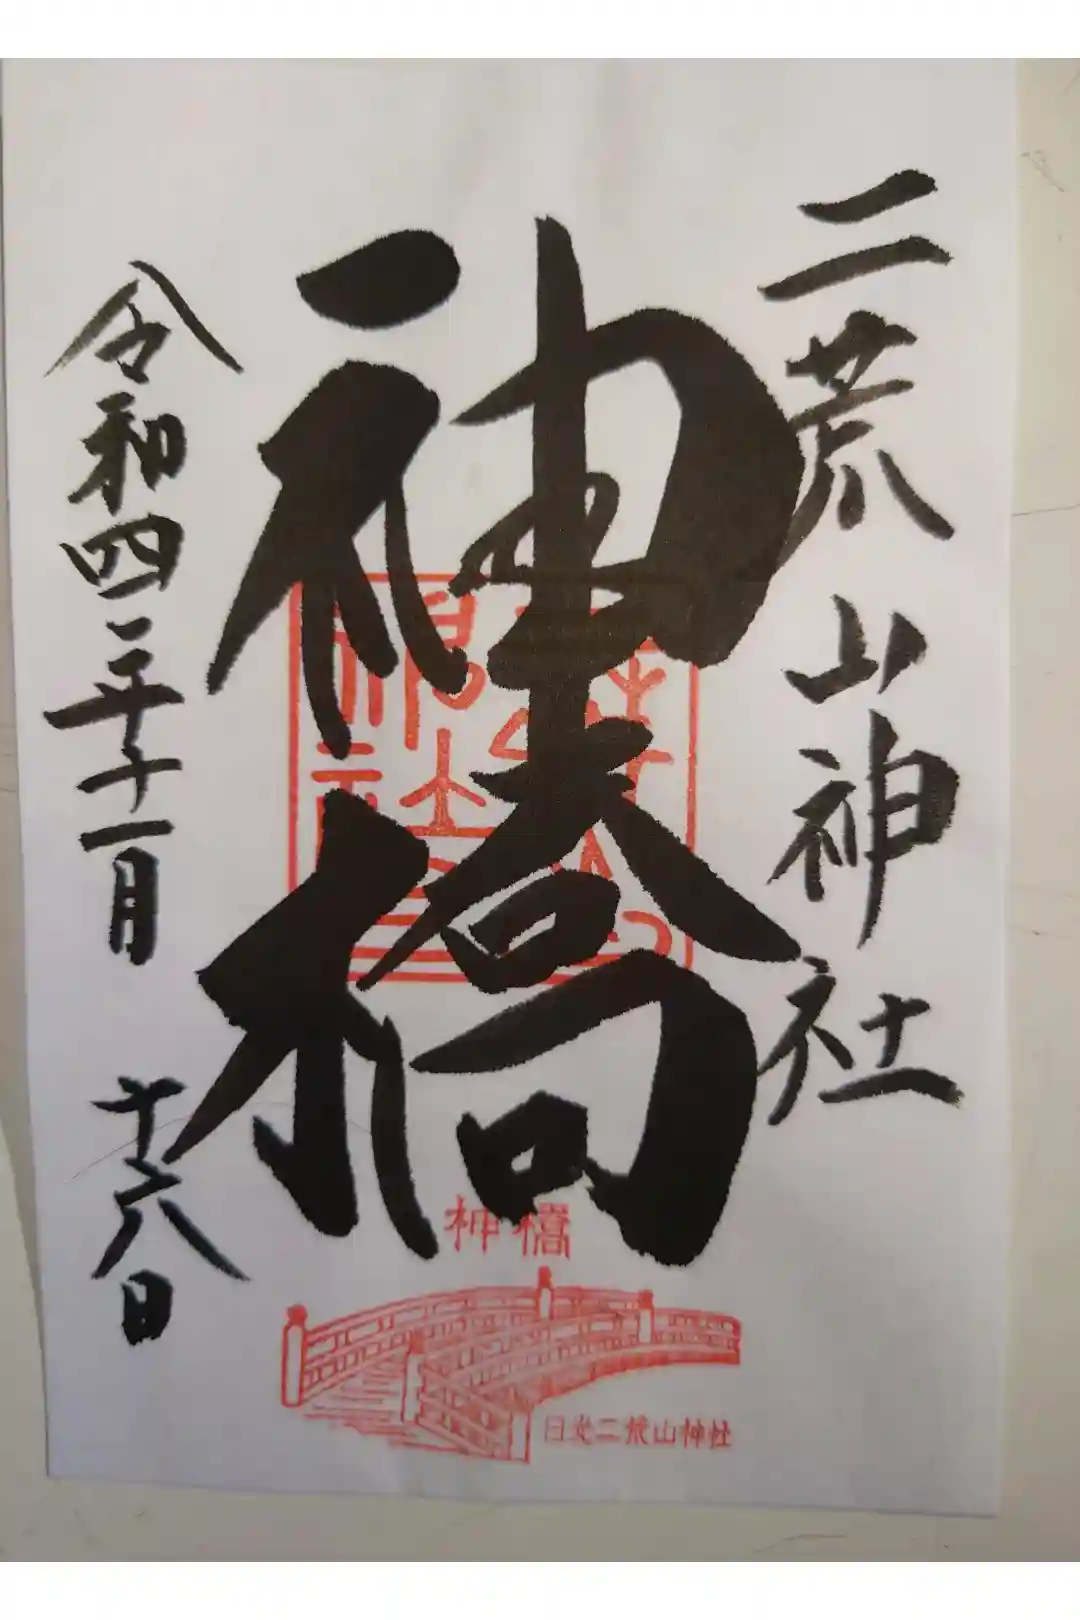 二荒山神社
神橋
令和四年十一月 十六日
神橋
日光二荒山神社